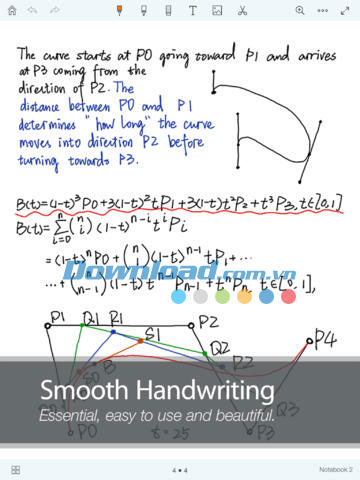 The curve starts at P0 going toward P1 and arrives
at P3 coming from the
direction of P2. The
distance between P0 and P1
determines "how long" the curve
moves into direction P2 before
turning towards P3.
B(t)=(1-t)³P0+3(1-t)²tP1+3(1-t)t²P2+t³P3, t∈[0,1]
B(t)=∑ⁿᵢ₌₀(ⁿᵢ)(1-t)ⁿ⁻ⁱtⁱPi
=(1-t)ⁿP0+(ⁿ₁)(1-t)ⁿ⁻¹tP1+⋯
Download.com.vn
⋯+(ⁿₙ₋₁)(1-t)tⁿ⁻¹Pn-1+tⁿPn, t∈[0,1],
P1 Q1 R1 S1 P2
Q2
R2
P4
B
S0
Smooth Handwriting
Essential, easy to use and beautiful.
Q3
P0
t=25
P3
4 • 4
Notebook 2